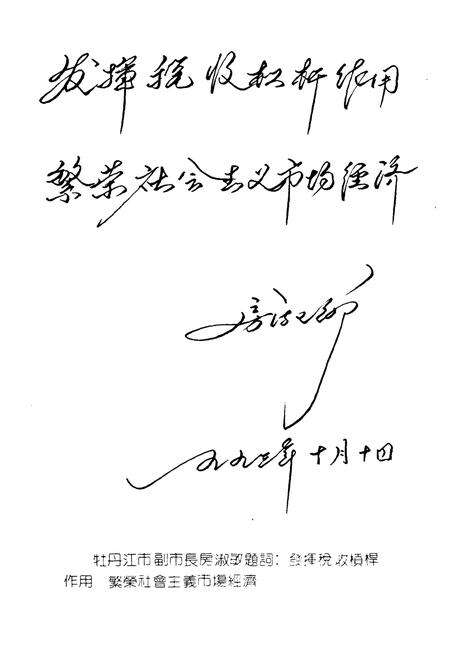 发揮税收杠杆作用
繁荣社会主义市场經济
房淑
一九九三年十月十四
牡丹江市副市長房淑題詞：發揮稅收槓桿
作用 繁榮社會主義市場經濟